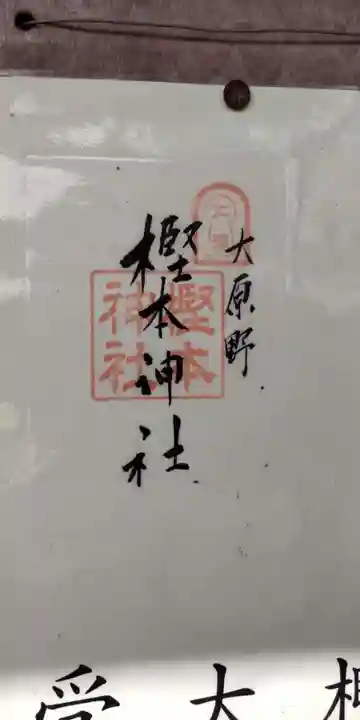 大原野
樫本神社
樫本
神社
受
大